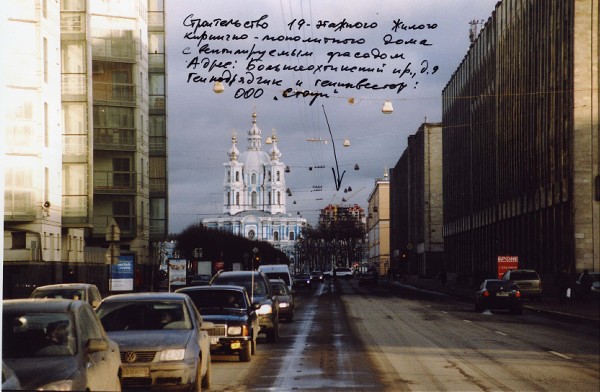 Строительство 19-этажного жилого
кирпично-монолитного дома
с вентилируемым фасадом
Адрес: Большеохтинский пр., д.9
Генподрядчик и генинвестор:
ООО „Стоун"